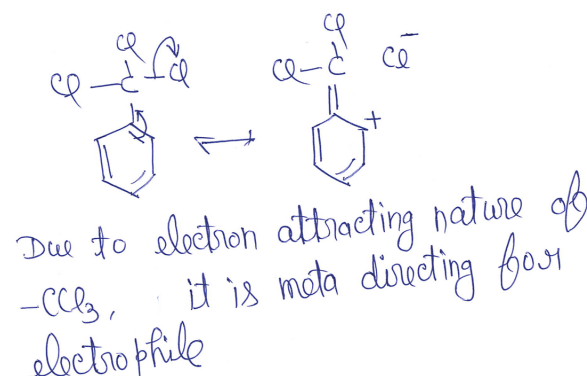 Cl Cl
Cl-C-Cl Cl-C Cl⁻
+
Due to electron attracting nature of
-CCl₃, it is meta directing for
electrophile